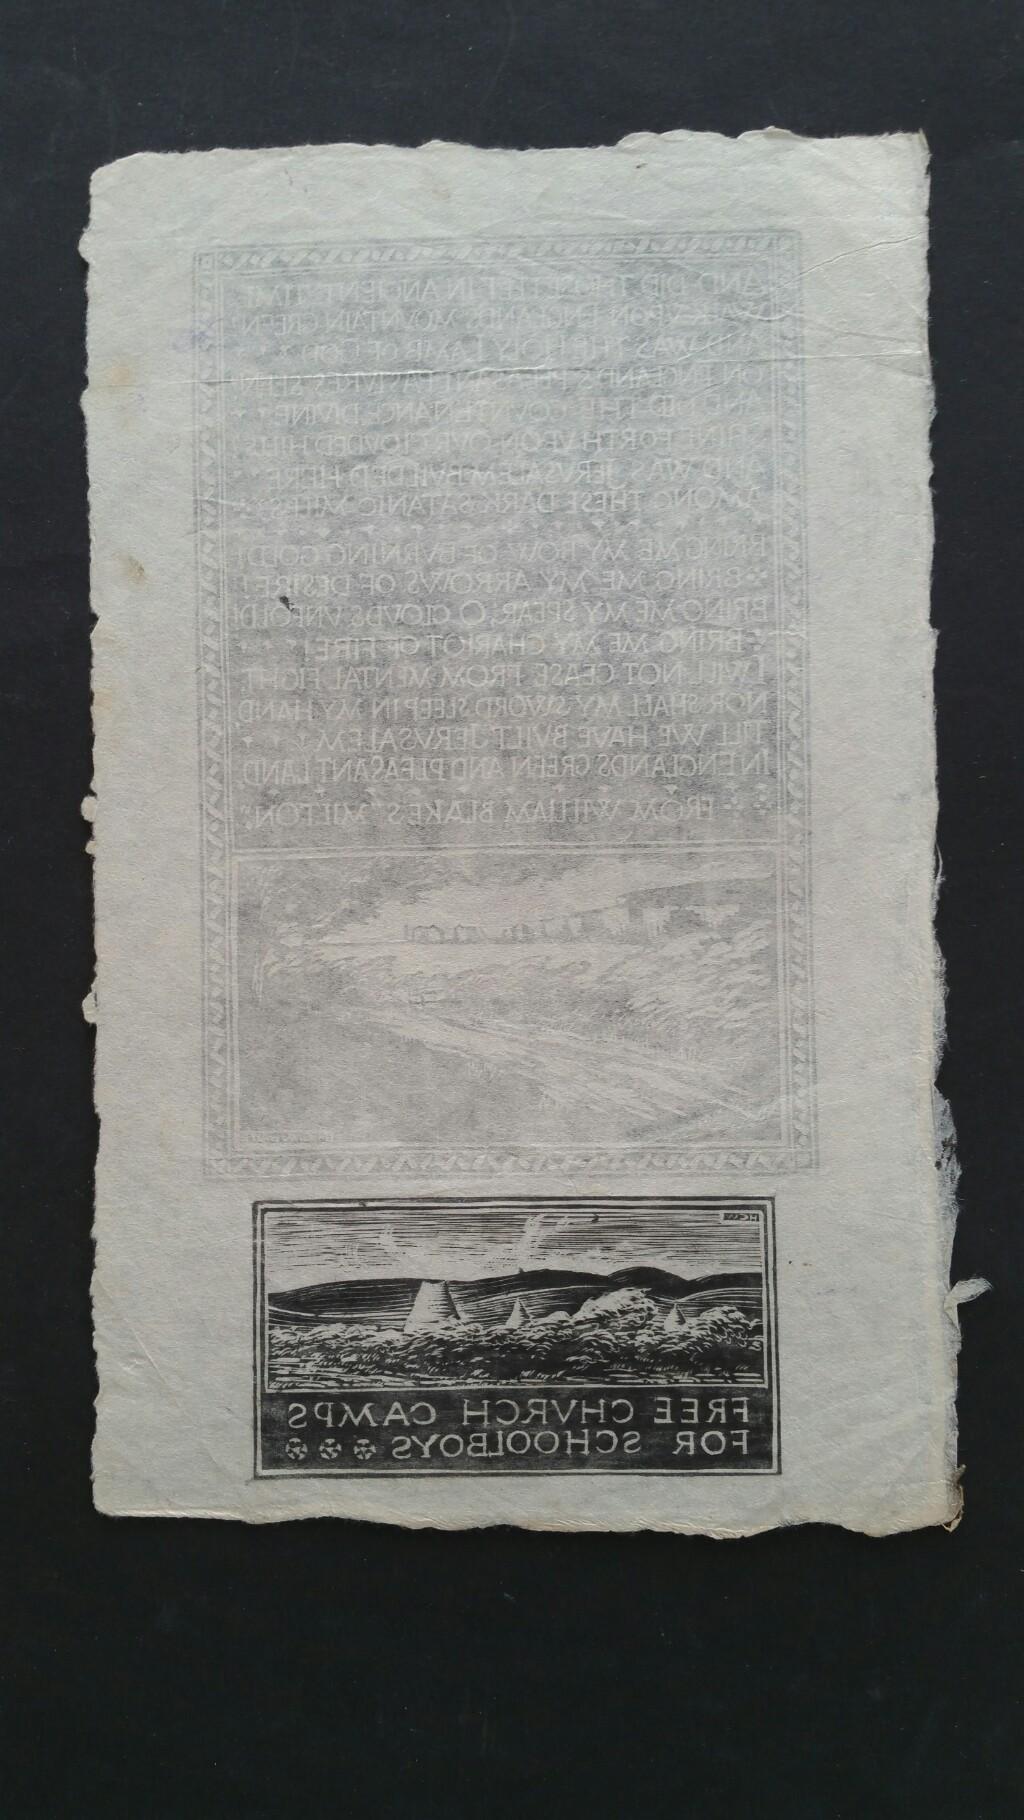 AND DID THOSE FEET IN ANCIENT TIME
WALK VPON ENGLANDS MOVNTAIN GREEN?
AND WAS THE HOLY LAMB OF GOD
ON ENGLANDS PLEASANT PASTVRES SEEN?
AND DID THE COVNTENANCE DIVINE
SHINE FORTH VPON OVR CLOVDED HILLS?
AND WAS JERVSALEM BVILDED HERE
AMONG THESE DARK SATANIC MILLS?
BRING ME MY BOW OF BVRNING GOLD!
BRING ME MY ARROWS OF DESIRE!
BRING ME MY SPEAR: O CLOVDS VNFOLD!
BRING ME MY CHARIOT OF FIRE!
I WILL NOT CEASE FROM MENTAL FIGHT,
NOR SHALL MY SWORD SLEEP IN MY HAND,
TILL WE HAVE BVILT JERVSALEM
IN ENGLANDS GREEN AND PLEASANT LAND.
FROM WILLIAM BLAKES "MILTON".
HCW
FREE CHVRCH CAMPS
FOR SCHOOLBOYS